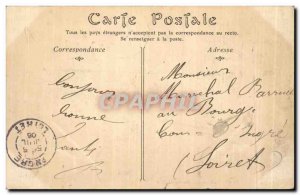 Carte Postale
Tous les pays étrangers n'acceptent pas la correspondance au recto.
Se renseigner à la poste.
Correspondance
Adresse
Bonjour
bonne
santé
Monsieur
Maréchal
au Bourg
Com Ingré
(Loiret
INGRÉ
LOIRET
08
CPA